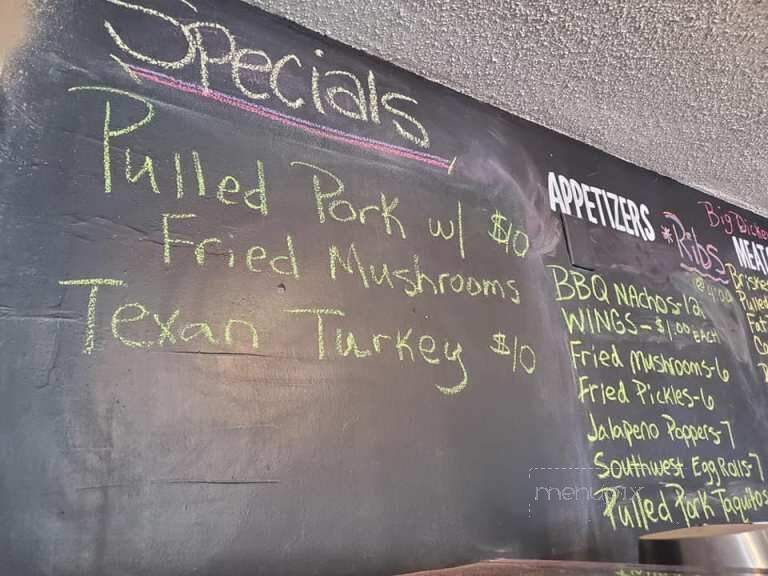 Specials
Pulled Pork w/ $10
Fried Mushrooms
Texan Turkey $10
APPETIZERS
BBQ NAchos-12
WINGS-$1.00 EACH
Fried Mushrooms-6
Fried Pickles-6
Jalapeno Poppers-7
Southwest Egg Rolls-7
Pulled Pork Taquitos
*Ribs
Big Dicke
MEAT
Briske
Pulled
menupix